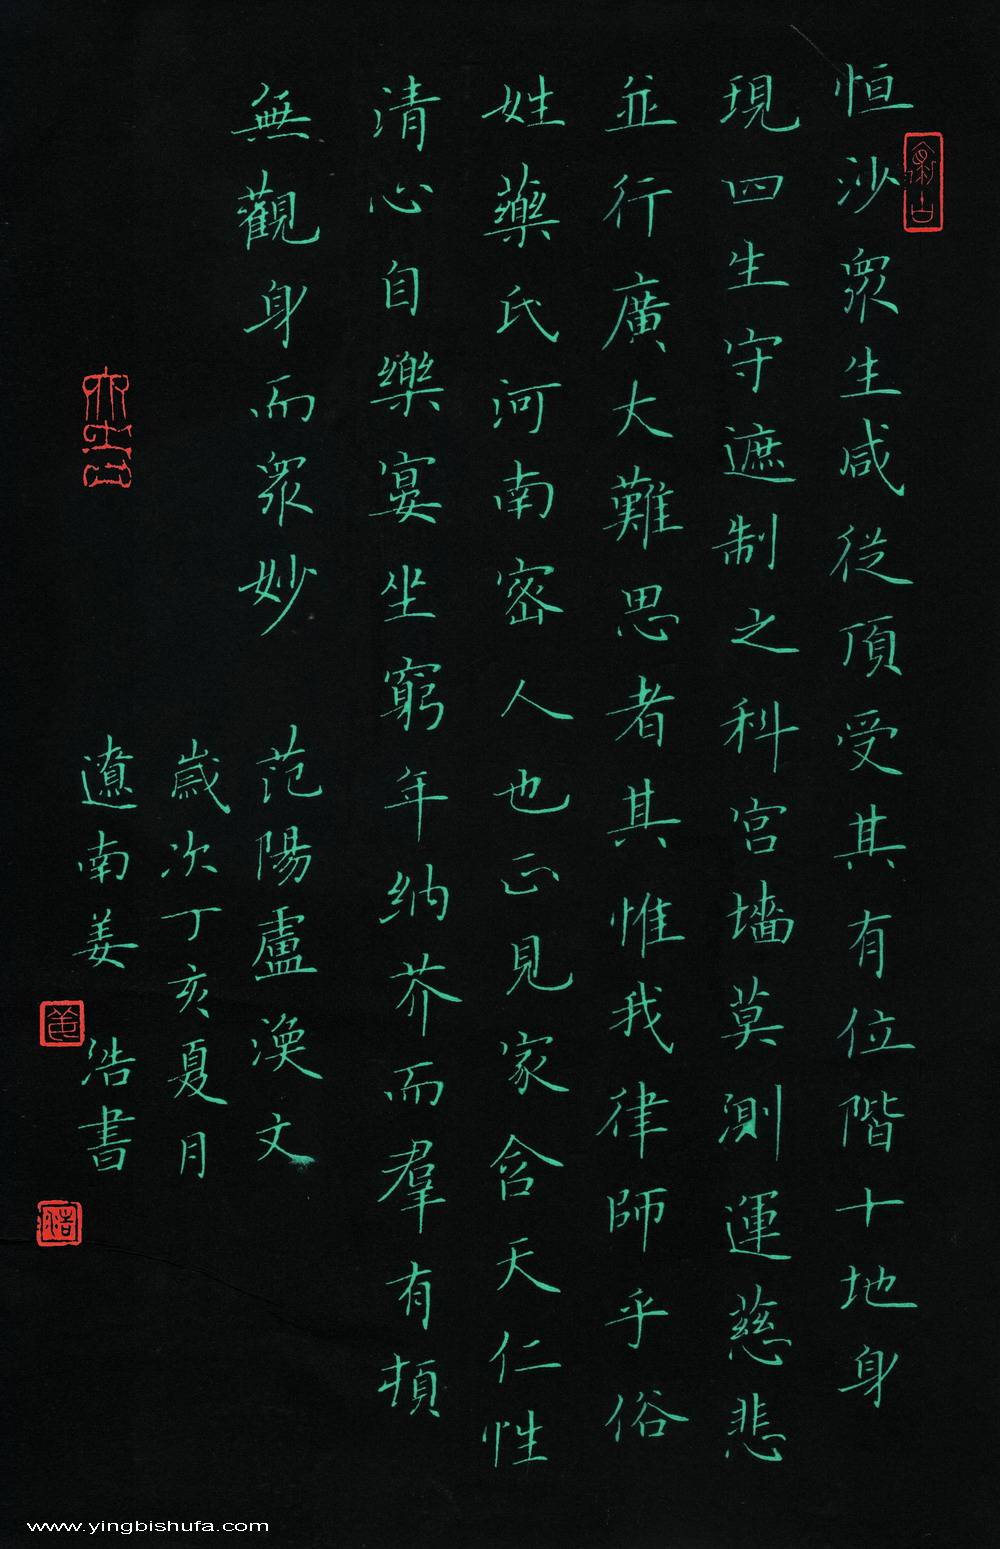 恒沙眾生咸從頂受其有位階十地身
現四生守遮制之科宮墻莫測運慈悲
並行廣大難思者其惟我律師乎俗
姓藥氏河南密人也正見家含天仁性
清心自樂宴坐窮年納芥而羣有頓
無觀身而眾妙
范陽盧渙文
歲次丁亥夏月
遼南姜浩書
www.yingbishufa.com